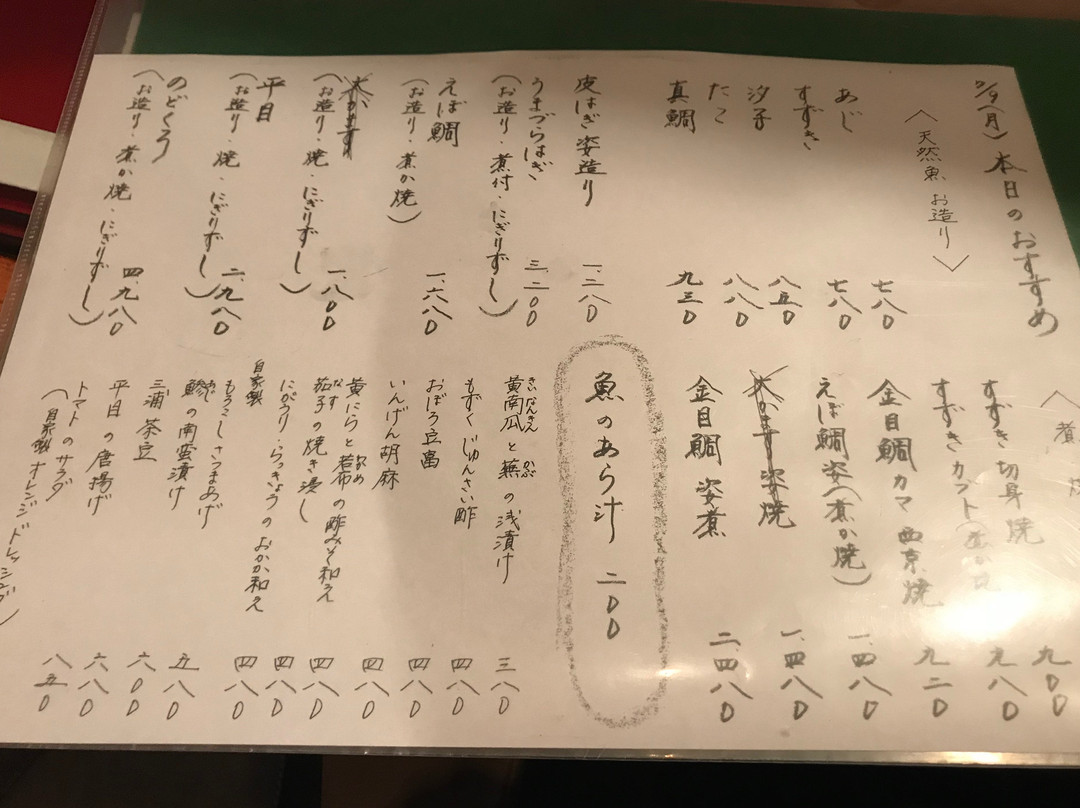 (月) 本日のおすすめ
〈天然魚 お造り〉
あじ 七八〇
すずき 七八〇
汐子 八五〇
たこ 八八〇
真鯛 九三〇
皮はぎ姿造り 一、二八〇
うまづらはぎ 三、二〇〇
(お造り・煮付・にぎりずし)
えぼ鯛 一、六八〇
(お造り・煮か焼)
(お造り・焼・にぎりずし) 一、八〇〇
平目
(お造り・焼・にぎりずし) 二、九八〇
のどくろ
(お造り・煮か焼・にぎりずし) 四、九八〇
〈煮
九〇〇
すずき切身焼 九八〇
すずきカブト 九二〇
金目鯛カマ西京焼 一、四八〇
えぼ鯛姿(煮か焼) 一、四八〇
姿焼
金目鯛姿煮 二、四八〇
魚のあら汁 二〇〇
黄南瓜と蕪の浅漬け 三八〇
もずくじゅんさい酢 四八〇
おぼろ豆富 四八〇
いんげん胡麻 四八〇
黄にらと若布の酢みそ和え 四八〇
茄子の焼き浸し 四八〇
にがうり・らっきょうのおかか和え 四八〇
自家製 もろこしさつまあげ 五八〇
鯵の南蛮漬け 六〇〇
三浦茶豆
平目の唐揚げ 六八〇
トマトのサラダ 八五〇
(自家製オレンジドレッシング)